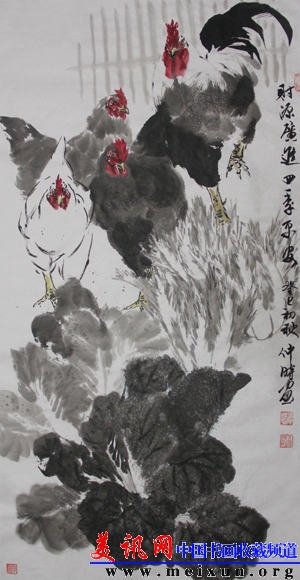 财源廣進四季平安 癸巳初秋 仲画
美讯网 中国书画收藏频道
www.meixun.org